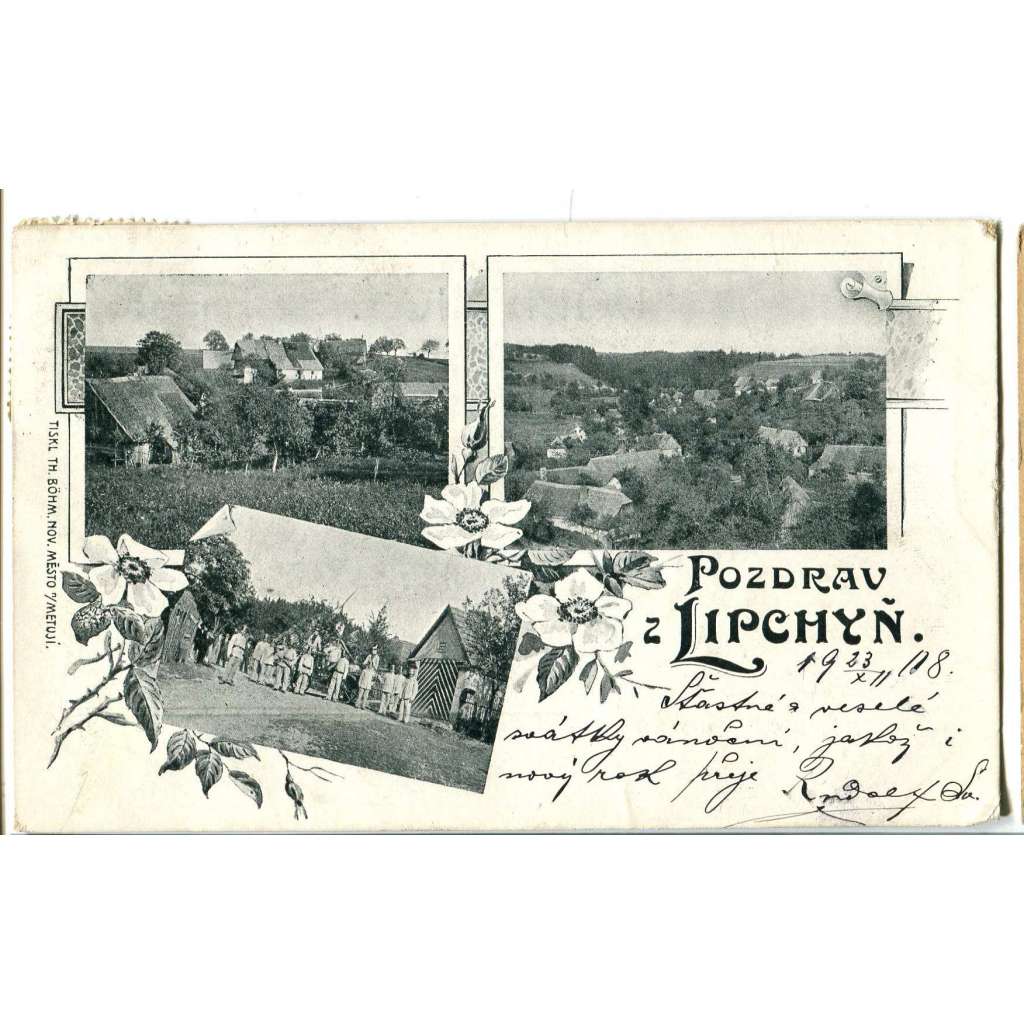 TISKL TH. BÖHM, NOV. MĚSTO n/METUJÍ.
POZDRAV
z LIPCHYŇ.
19 23/XII 08.
Šťastné a veselé
svátky vánoční, jakož i
nový rok přeje Rudolf Sv.